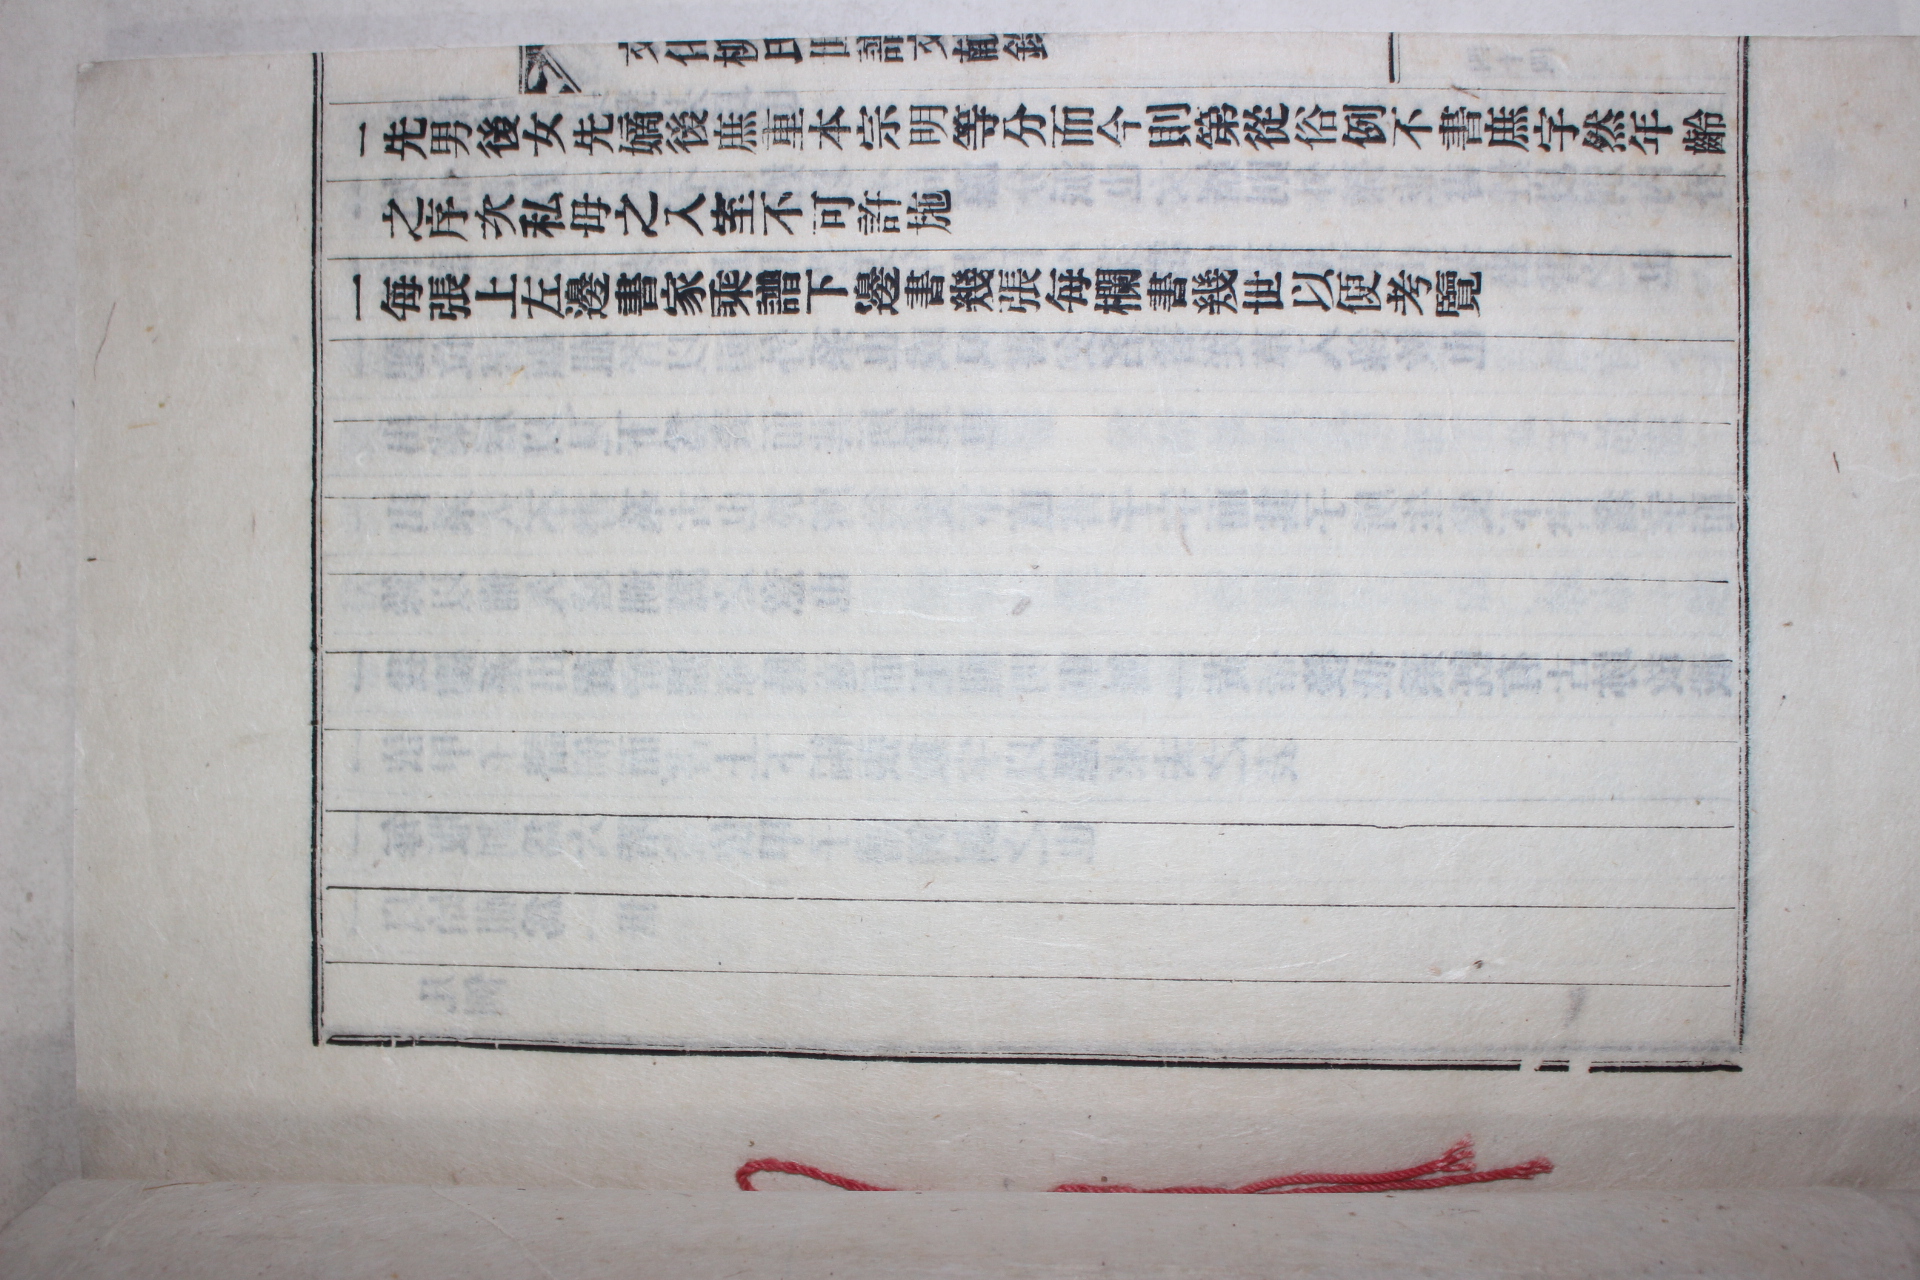 文化柳氏世譜文献錄
一先男後女先嫡後庶重本宗明等分而今則第從俗例不書庶字然年齡
之序次私毋之入室不可許施
一每張上左邊書家乘譜下邊書幾張每欄書幾世以便考覽